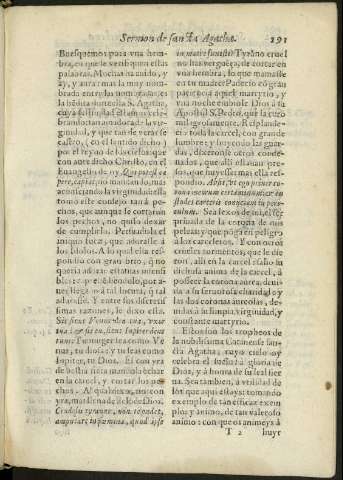 Sermon de santa Agatha. 291
Busquemos para vna hem-
bra, en que le verifiquen estas
palabras. Muchas ha auido, y
ay, y entre mas la muy nom-
brada entre las nombradas, es
la bēdita donzella S. Agatha,
cuya fiesta la
brando tan adornada de la vir-
ginidad, y que tan de veras se
castro, (en el sentido dicho)
por el reyno de los cielos: que
con auer dicho Christo, en el
Euangelio de oy, Qui potest ca
pere, capiat, no mandando, mas
aconsejando la virginidad: ella
tomo este consejo tan à pe-
chos, que aunque le cortaron
los pechos, no quiso dexar
de cumplirlo. Persuadiola el
iniquo juez, que adorasse à
los Idolos. A lo qual ella res-
pondio con gran brio, q̃ no
queria adorar estatuas insensi
bles
adorasse. Y entre sus discretis
simas razones, le dixo ella.
Sit sicut Venus dea tua, vxor
tua: & tu sis, sicut Iupiter deus
tuus: Tu muger sea como Ve
nus, tu diosa: y tu seas como
Iupiter, tu Dios. El con yra
de bestia fiera mandola echar
en la carcel, y cortar los pe-
chos. Al qual dixo, no con
yra, mas llena de zelo de Dios.
Crudelis tyranne, non te pudet,
amputare in fœmina, quod ipse
in matre suxisti? Tyrano cruel
no has verguēça, de cortar en
vna hembra, lo que mamaste
en tu madre? Padecio cō gran
paciencia aquel martyrio, y
vna noche embiole Dios à su
Apostol S. Pedro, q̃ la curo
milagrosamente. Resplande-
cio toda la carcel, con grande
lumbre: y huyendo las guar-
das, dixeronle otros conde-
nados, que alli estauan pre-
sos, que huyesse: mas ella res-
pondio. Absit, vt ego primo co-
ronâ mecum certamini
stodes carceris conijciam in peri-
culum. Sea lexos de mi, el ser
priuada de la corona de mis
peleas: y que põga en peligro
a los carceleros. Y con otros
crueles tormentos, que le die
ron, alli en la carcel salio la
dichosa anima de la carcel, à
posseer la corona aurea, deui-
da à su feruorosa charidad: y
las dos coronas aureolas, de-
uidas à su limpia virginidad, y
constante martyrio.
Estos son los tropheos de
la nobilissima Catinense san-
cta Agatha, cuyo culto oy
celebra el suelo: à gloria de
Dios, y à honra de su leal sier
na. Sea tambien, à vtilidad de
los que aqui estays: tomando
exemplo de tan eficaz exem
plo: y animo, de tan valeroso
animo: con que os animeys à
T 2 huyr